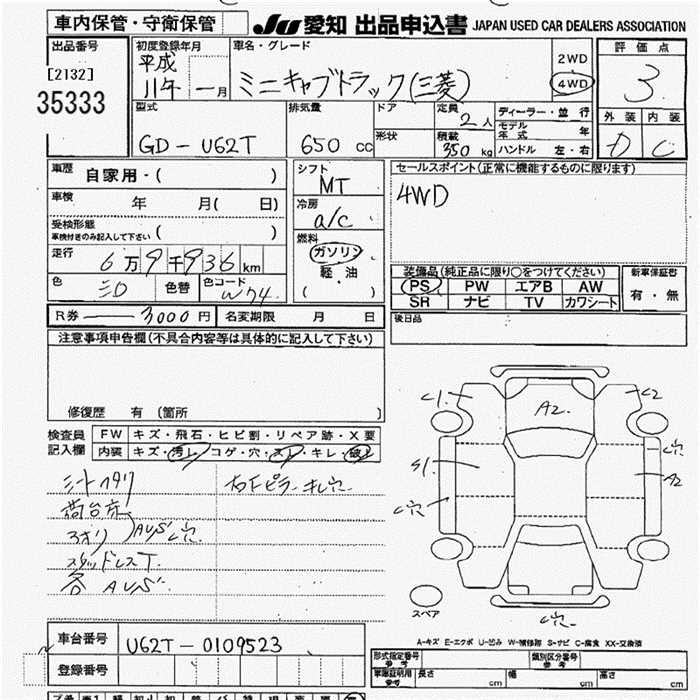 車内保管・守衛保管 JU 愛知 出品申込書 JAPAN USED CAR DEALERS ASSOCIATION
出品番号 初度登録年月 車名・グレード 2WD 評価点
[2132] 平成 11年 一月 ミニキャブトラック(三菱) 4WD 3
35333 型式 排気量 ドア 定員 2人 ディーラー・並行 外装 内装
モデル年式 年
GD-U62T 650cc 形状 積載 350kg ハンドル 左・右 D C
車歴 自家用・( ) シフト MT セールスポイント(正常に機能するものに限ります)
車検 年 月( 日) 冷房 a/c 4WD
受検形態 ( )
車検付きのみ記入して下さい
燃料
走行 6万9千936km ガソリン
軽・油
( )
色 シロ 色替 色コード W74 装備品(純正品に限り○をつけてください) 新車保証書
PS PW エアB AW 有・無
SR ナビ TV カワシート
R券 3000円 名変期限 月 日 後日品
注意事項申告欄(不具合内容等は具体的に記入して下さい)
修復歴 有 (箇所 )
検査員 FW キズ・飛石・ヒビ割・リペア跡・X要
記入欄 内装 キズ・汚レ・コゲ・穴・スレ・キレ・破レ
C1 A2. C2
S1 C穴 A2
C穴
シートヘタリ 右Fピラーキレ穴
荷台床
アオリ AUS C穴
スタッドレスT.
各AUS
スペア C穴
A-キズ E-エクボ U-凹み W-補修跡 S-サビ C-腐食 XX-交換済
車台番号 U62T-0109523
登録番号
型式指定番号 参考 類別区分番号 参考
車庫証明用 参考 長さ cm 幅 cm 高さ cm